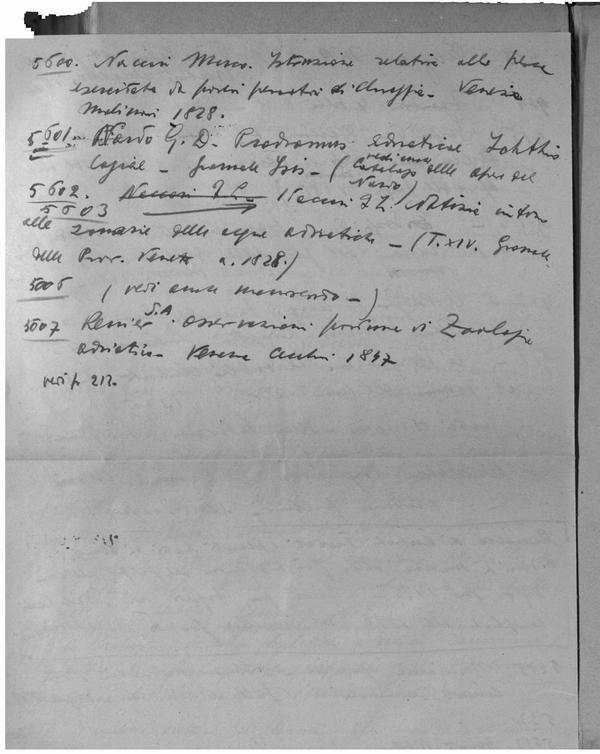 5600. Naccari Marco. Istruzione relativa alla pesca
esercitata da poveri pescatori di Chioggia - Venezia
Molinari 1828.
5601. Nardo G. D. Prodromus adriaticae Ichthio
logiae - giornale Isis - (vedi anche catalogo delle opere del Nardo)
5602. Naccari F L -
5603 Naccari F L. Notizie intorno
alle zoonasie delle acque adriatiche - (T. XIV. Giornale
delle Prov. Venete a. 1828.)
5006 (vedi anche manoscritto -)
5607 Renier S. A. Osservazioni postume di Zoologia
adriatica - Venezia Cecchini 1847
vedi p. 212.